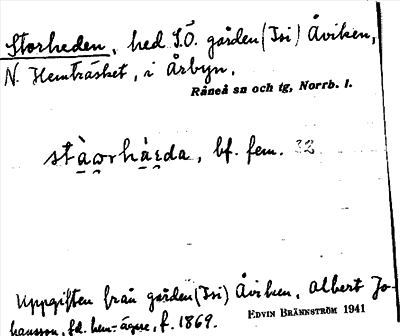 Storheden, hed S.Ö. gården (Isi) Åviken,
N. Hemträsket, i Årbyn.
Råneå sn och tg, Norrb. l.
bf. fem. 32
Uppgiften från gården (Isi) Åviken, Albert Jo-
hansson, f.d. hem.-ägare, f. 1869.
EDVIN BRÄNNSTRÖM 1941